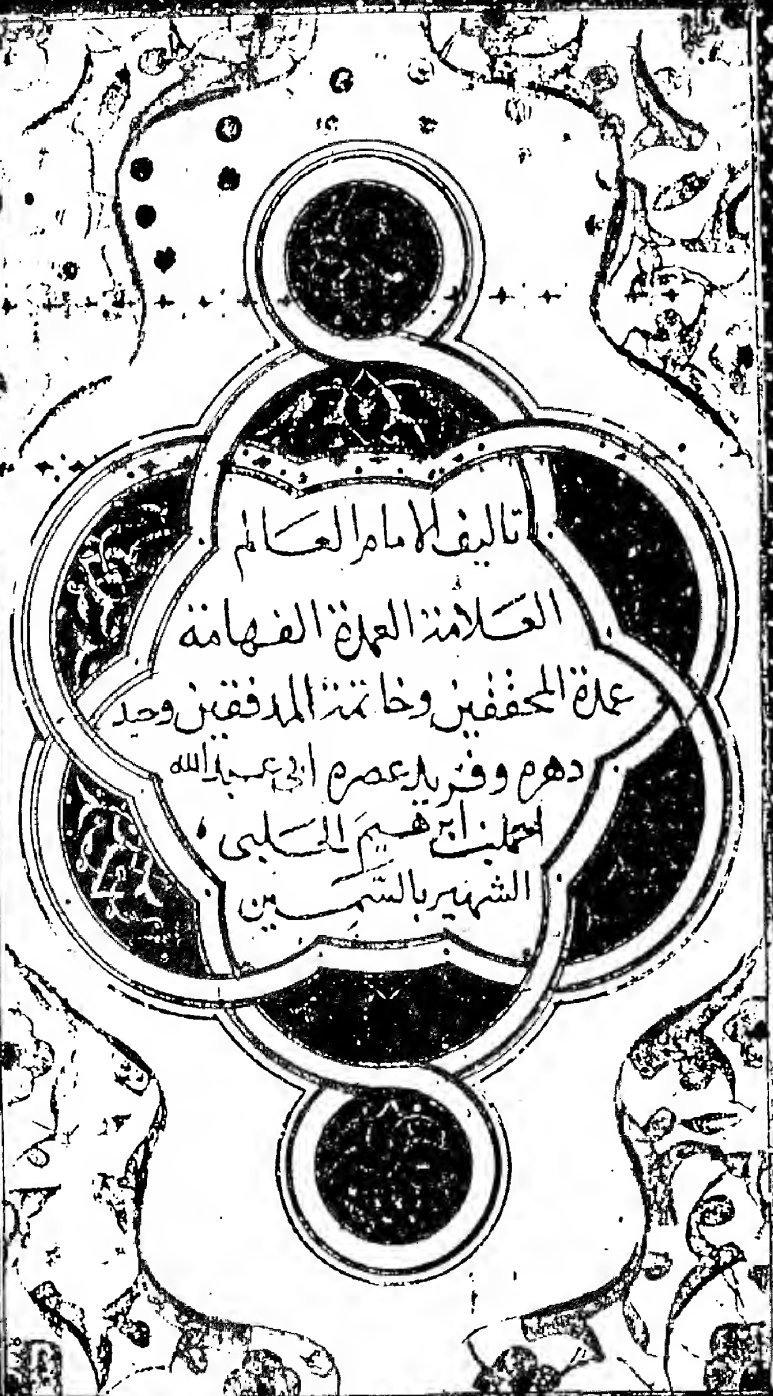 تاليف الامام العالم
العلامة العمدة الفهامة
عمدة المحققين وخاتمة المدققين وحيد
دهره وفريد عصره ابي عبد الله
احمد بن ابرهيم الحلبي
الشهير بالسمين